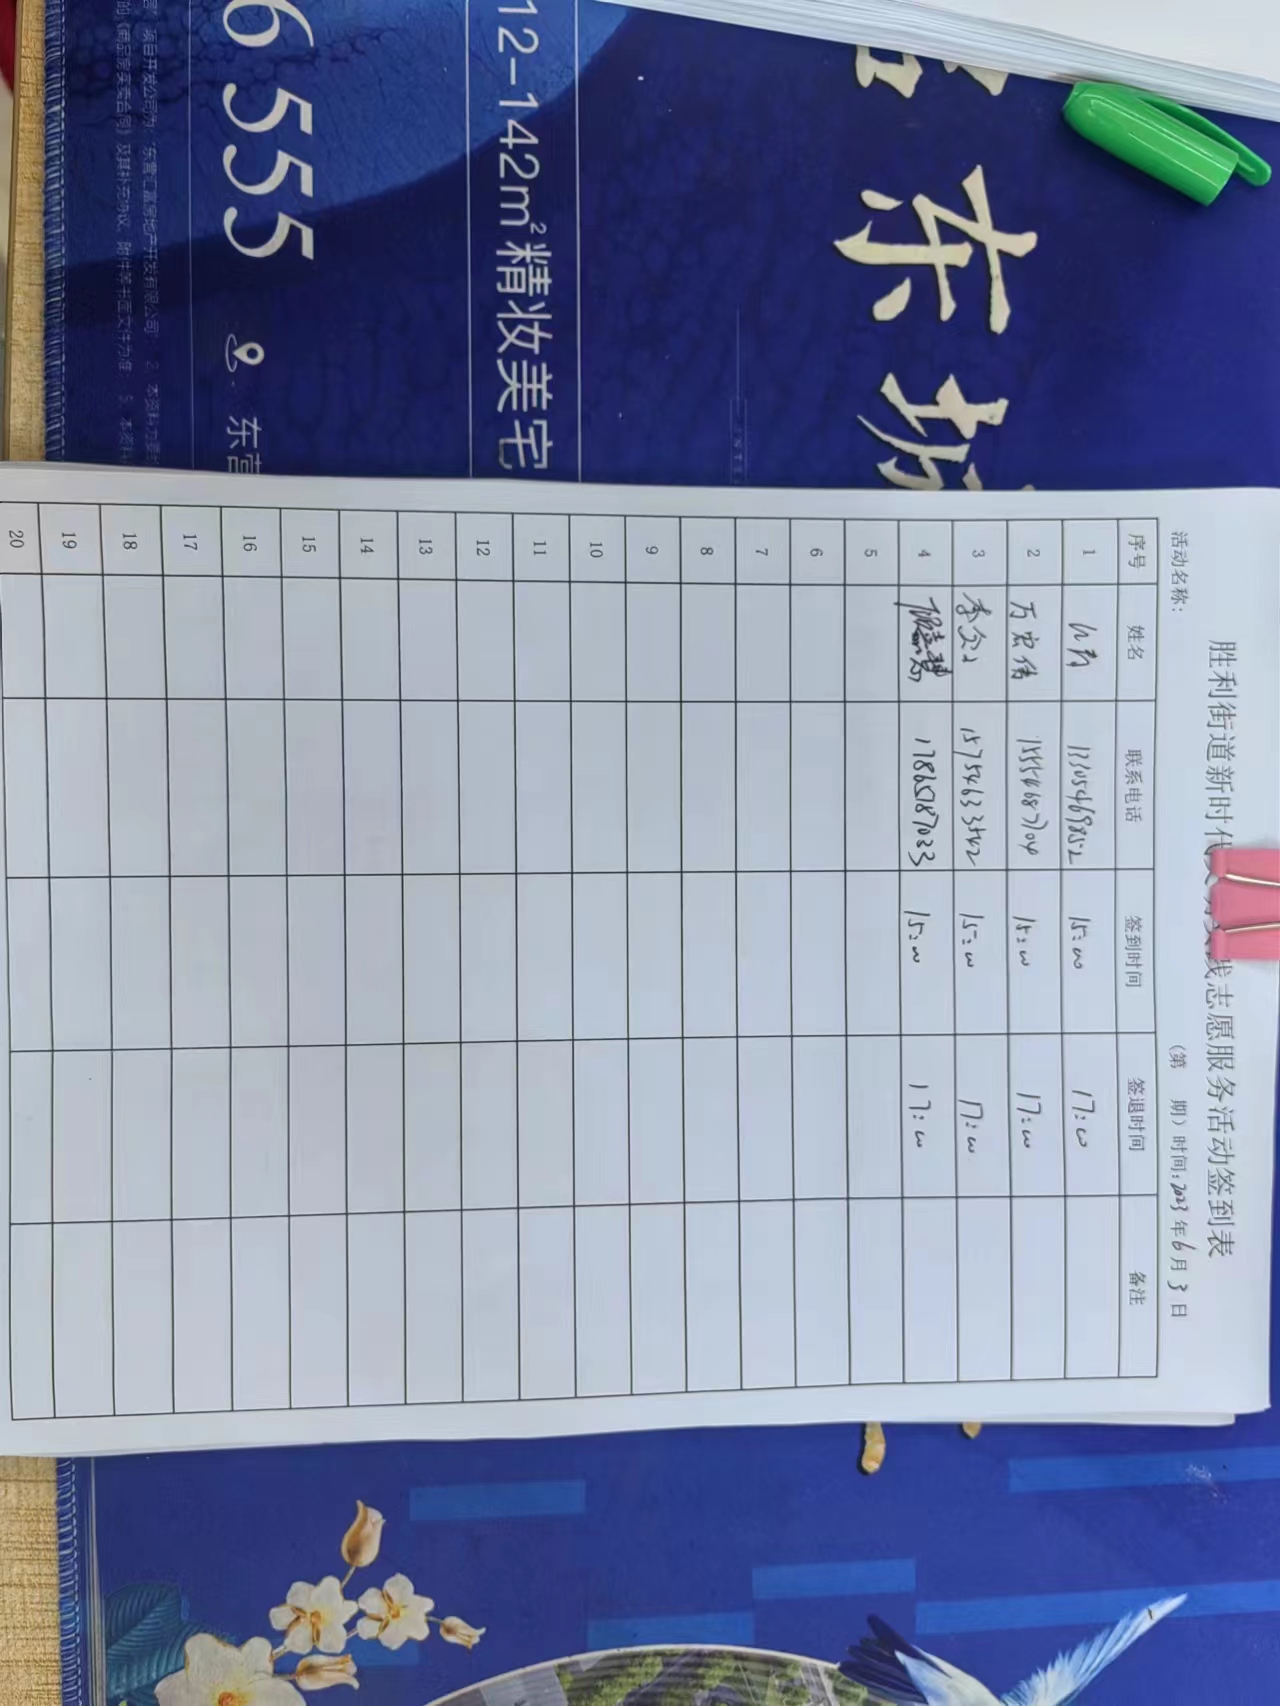 6555
东营
12-142m²精妆美宅
东坊
胜利街道新时代 践志愿服务活动签到表
活动名称： （第 期）时间：2023年6月3日
序号 姓名 联系电话 签到时间 签退时间 备注
1 13305469852 15:00 17:00
2 万宏伟 15554687704 15:00 17:00
3 15754633542 15:00 17:00
4 17865787033 15:00 17:00
5
6
7
8
9
10
11
12
13
14
15
16
17
18
19
20